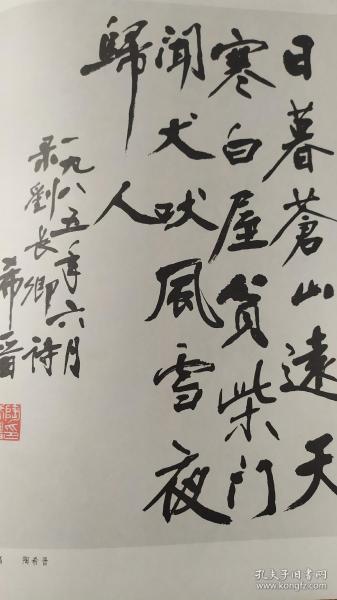 日暮蒼山遠天
寒白屋貧柴門
聞犬吠風雪夜
歸人
一九八五年六月
录劉長卿詩
希晋
陶希晋
孔夫子旧书网